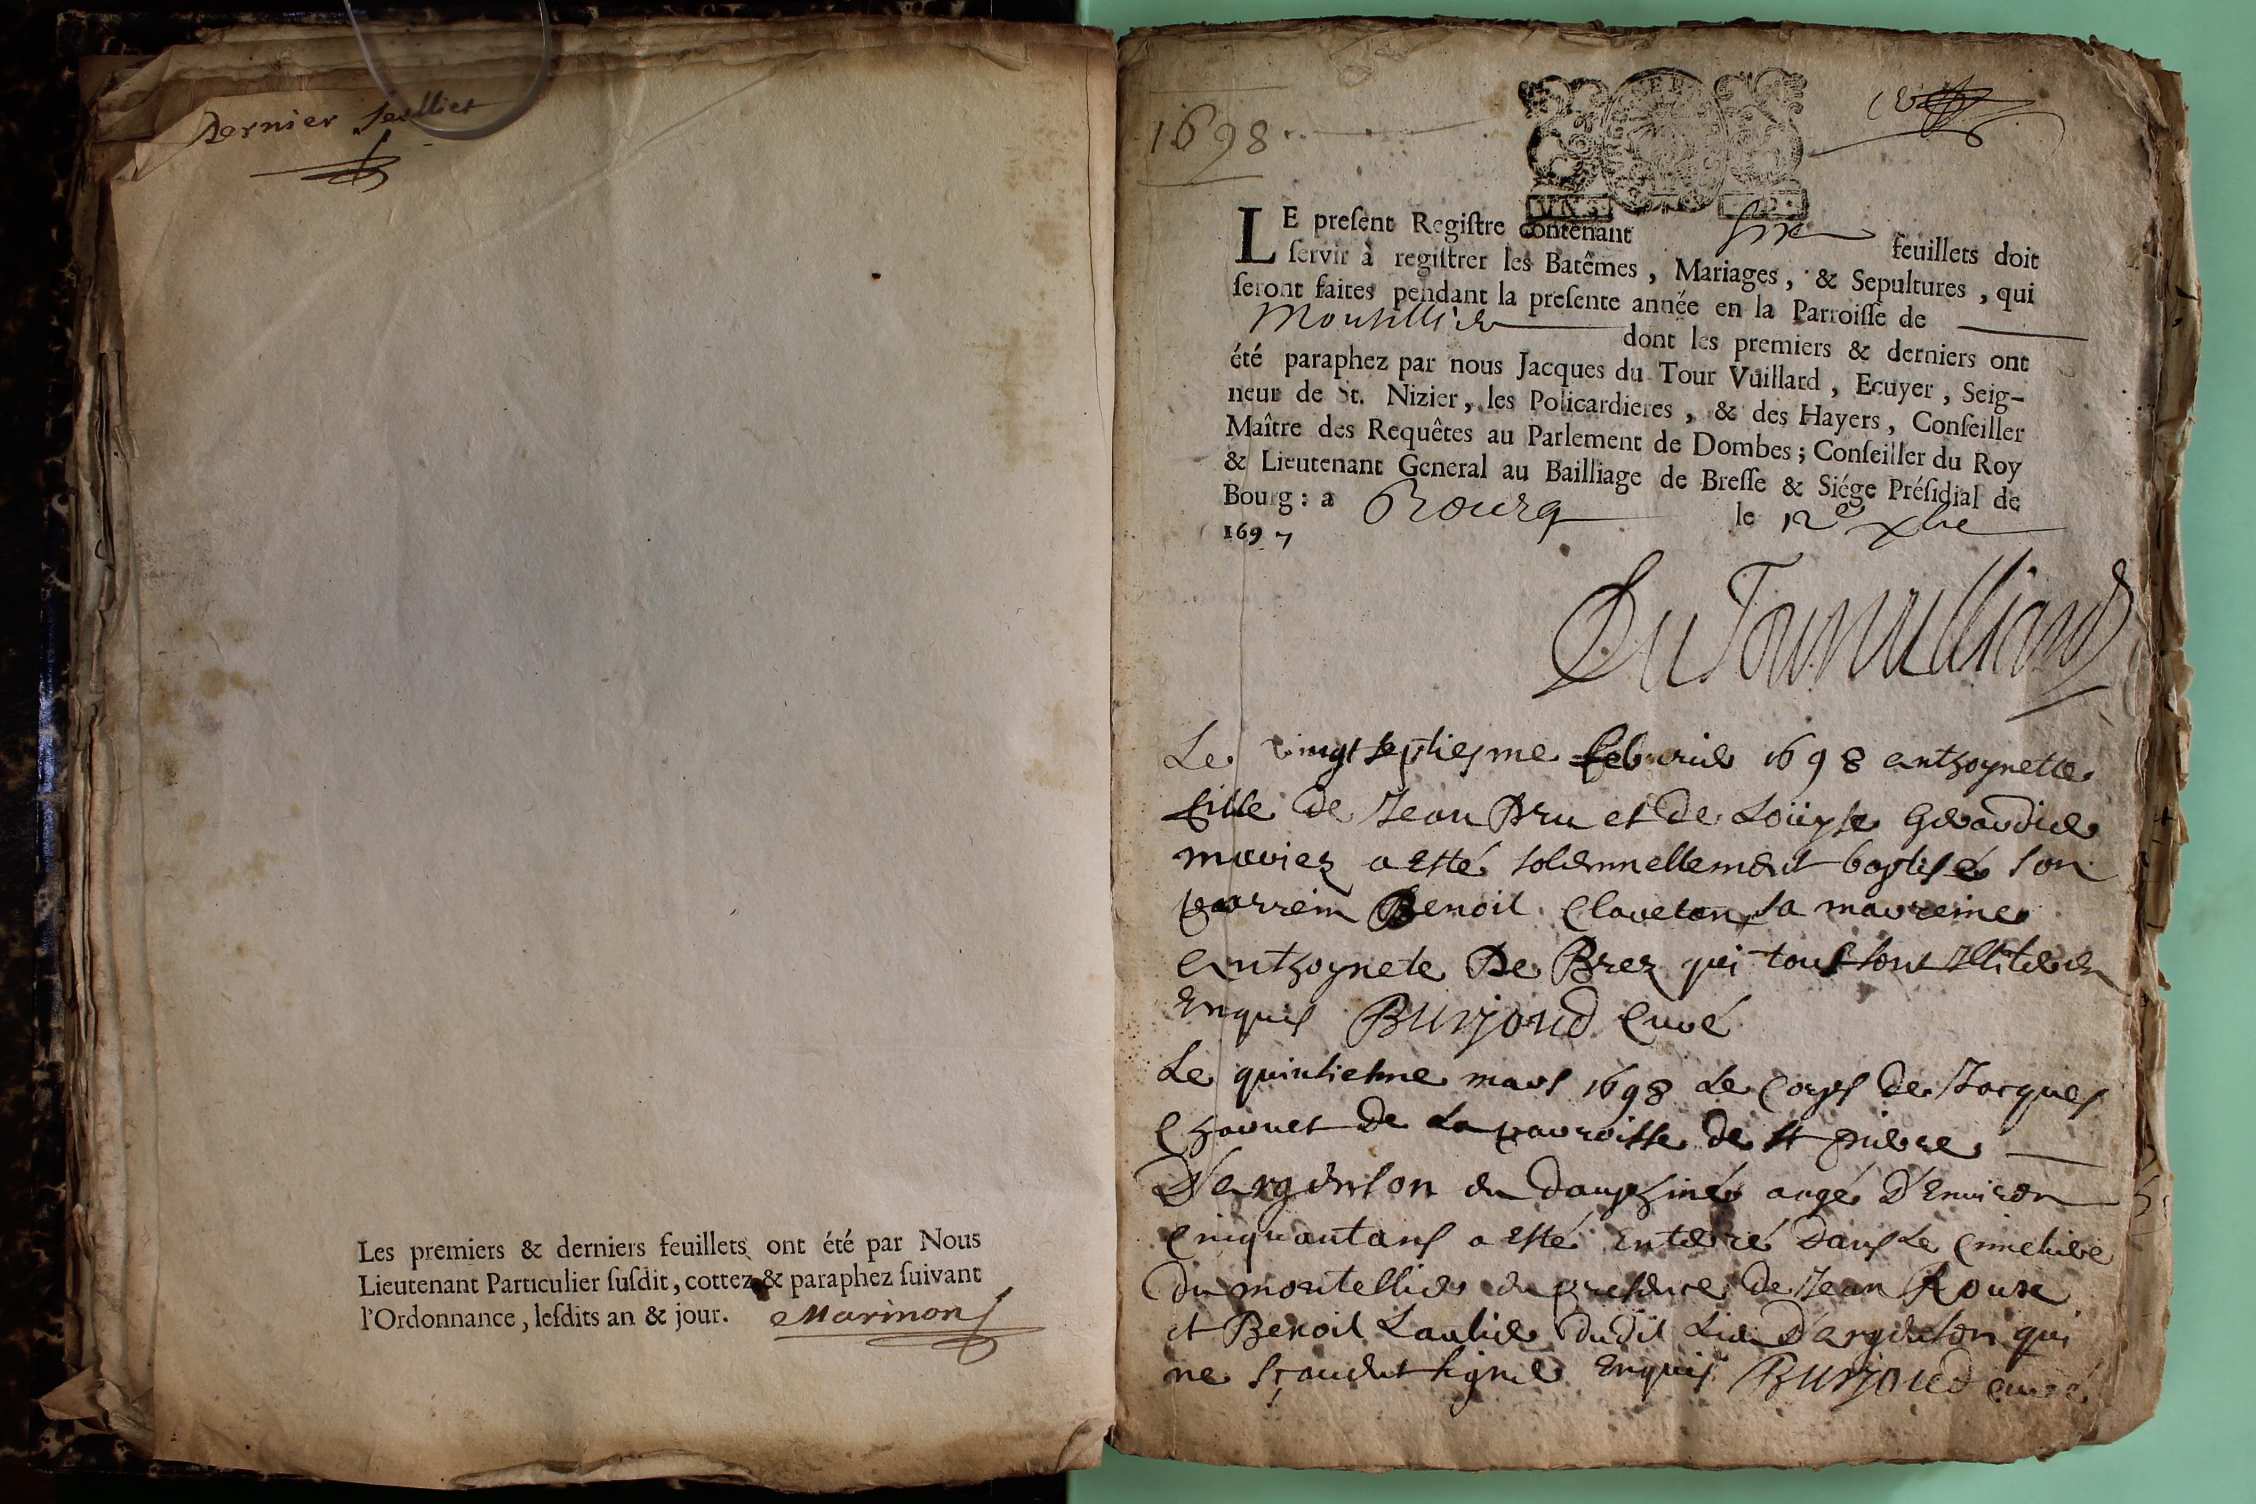 Dernier feulliet
Les premiers & derniers feuillets ont été par Nous
Lieutenant Particulier ſuſdit, cottez & paraphez ſuivant
l'Ordonnance, leſdits an & jour. Marinon
1698
LE preſent Regiſtre contenant six feuillets doit
ſervir à regiſtrer les Batêmes, Mariages, & Sepultures, qui
ſeront faites pendant la preſente année en la Parroiſſe de
Montillier dont les premiers & derniers ont
été paraphez par nous Jacques du Tour Vuillard, Ecuyer, Seig-
neur de St. Nizier, les Policardieres, & des Hayers, Conſeiller
Maître des Requêtes au Parlement de Dombes; Conſeiller du Roy
& Lieutenant General au Bailliage de Breſſe & Siége Préſidial de
Bourg: a Bourg le 12e xbre
1697
Du Tour Vuilliard
Le vingt septiesme febvrier 1698 anthoynette
fille de Jean Bru et de Loüyse
mariez a esté solemnellement baptisé son
parrein Benoit Claveton sa marreine
anthoynete De Brez qui tous sont illiterez
enquis Burjoud curé
Le quinziesme mars 1698 le corps de Jacques
Charvet de la parroisse de st pierre
D'argenson en dauphiné aagé d'environ
cinquantans a esté enterré dans le cimetiere
du montellier en presence de Jean Roux
et Benoit Lautier dudit lieu d'argenson qui
ne sçavent signer enquis Burjoud curé